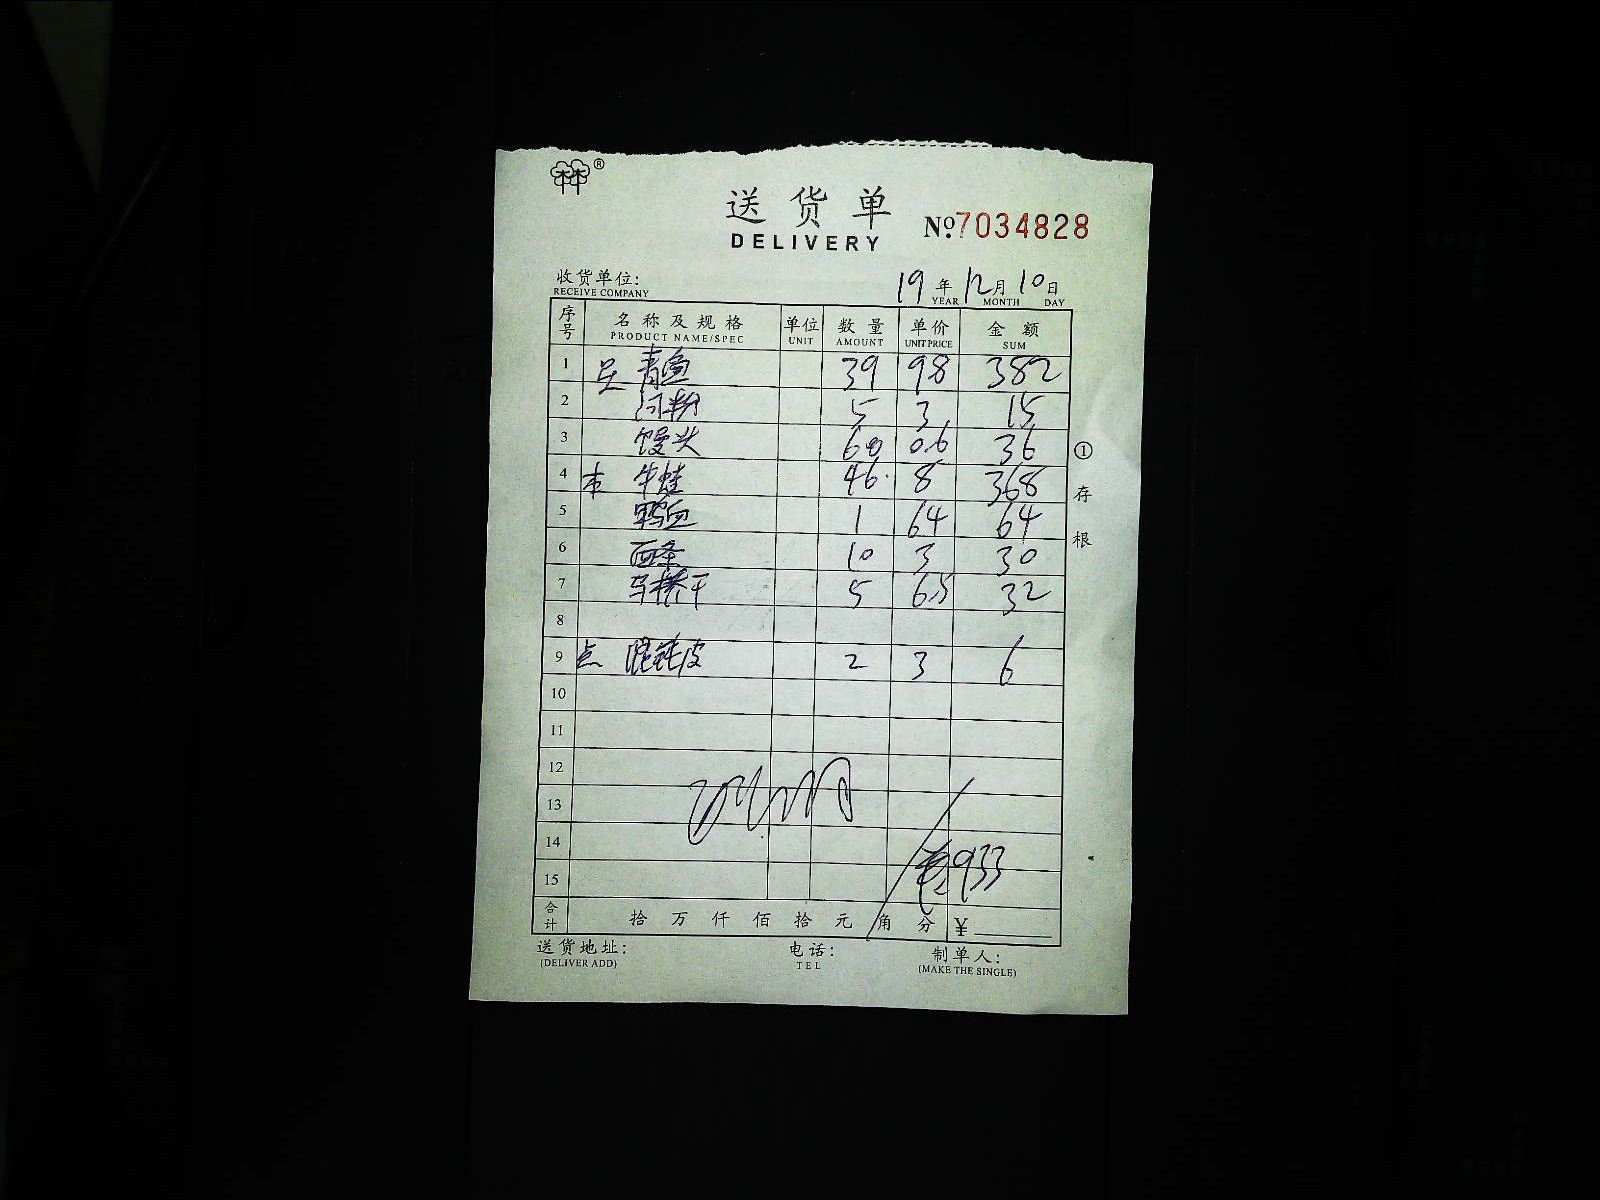 ®
送货单
DELIVERY
№7034828
收货单位:
RECEIVE COMPANY
19年12月10日
YEAR MONTH DAY
序号 名称及规格 单位 数量 单价 金额
PRODUCT NAME/SPEC UNIT AMOUNT UNIT PRICE SUM
1 青鱼 39 98 382
2 河粉 5 3 15
3 馒头 60 0.6 36
4 本 牛蛙 46 8 368
5 鸭血 1 64 64
6 面条 10 3 30
7 5 6.5 32
8
9 点 馄饨皮 2 3 6
10
11
12
13
14 933
15
合计 拾万仟佰拾元角分 ¥
送货地址: 电话: 制单人:
(DELIVER ADD) TEL (MAKE THE SINGLE)
①存根